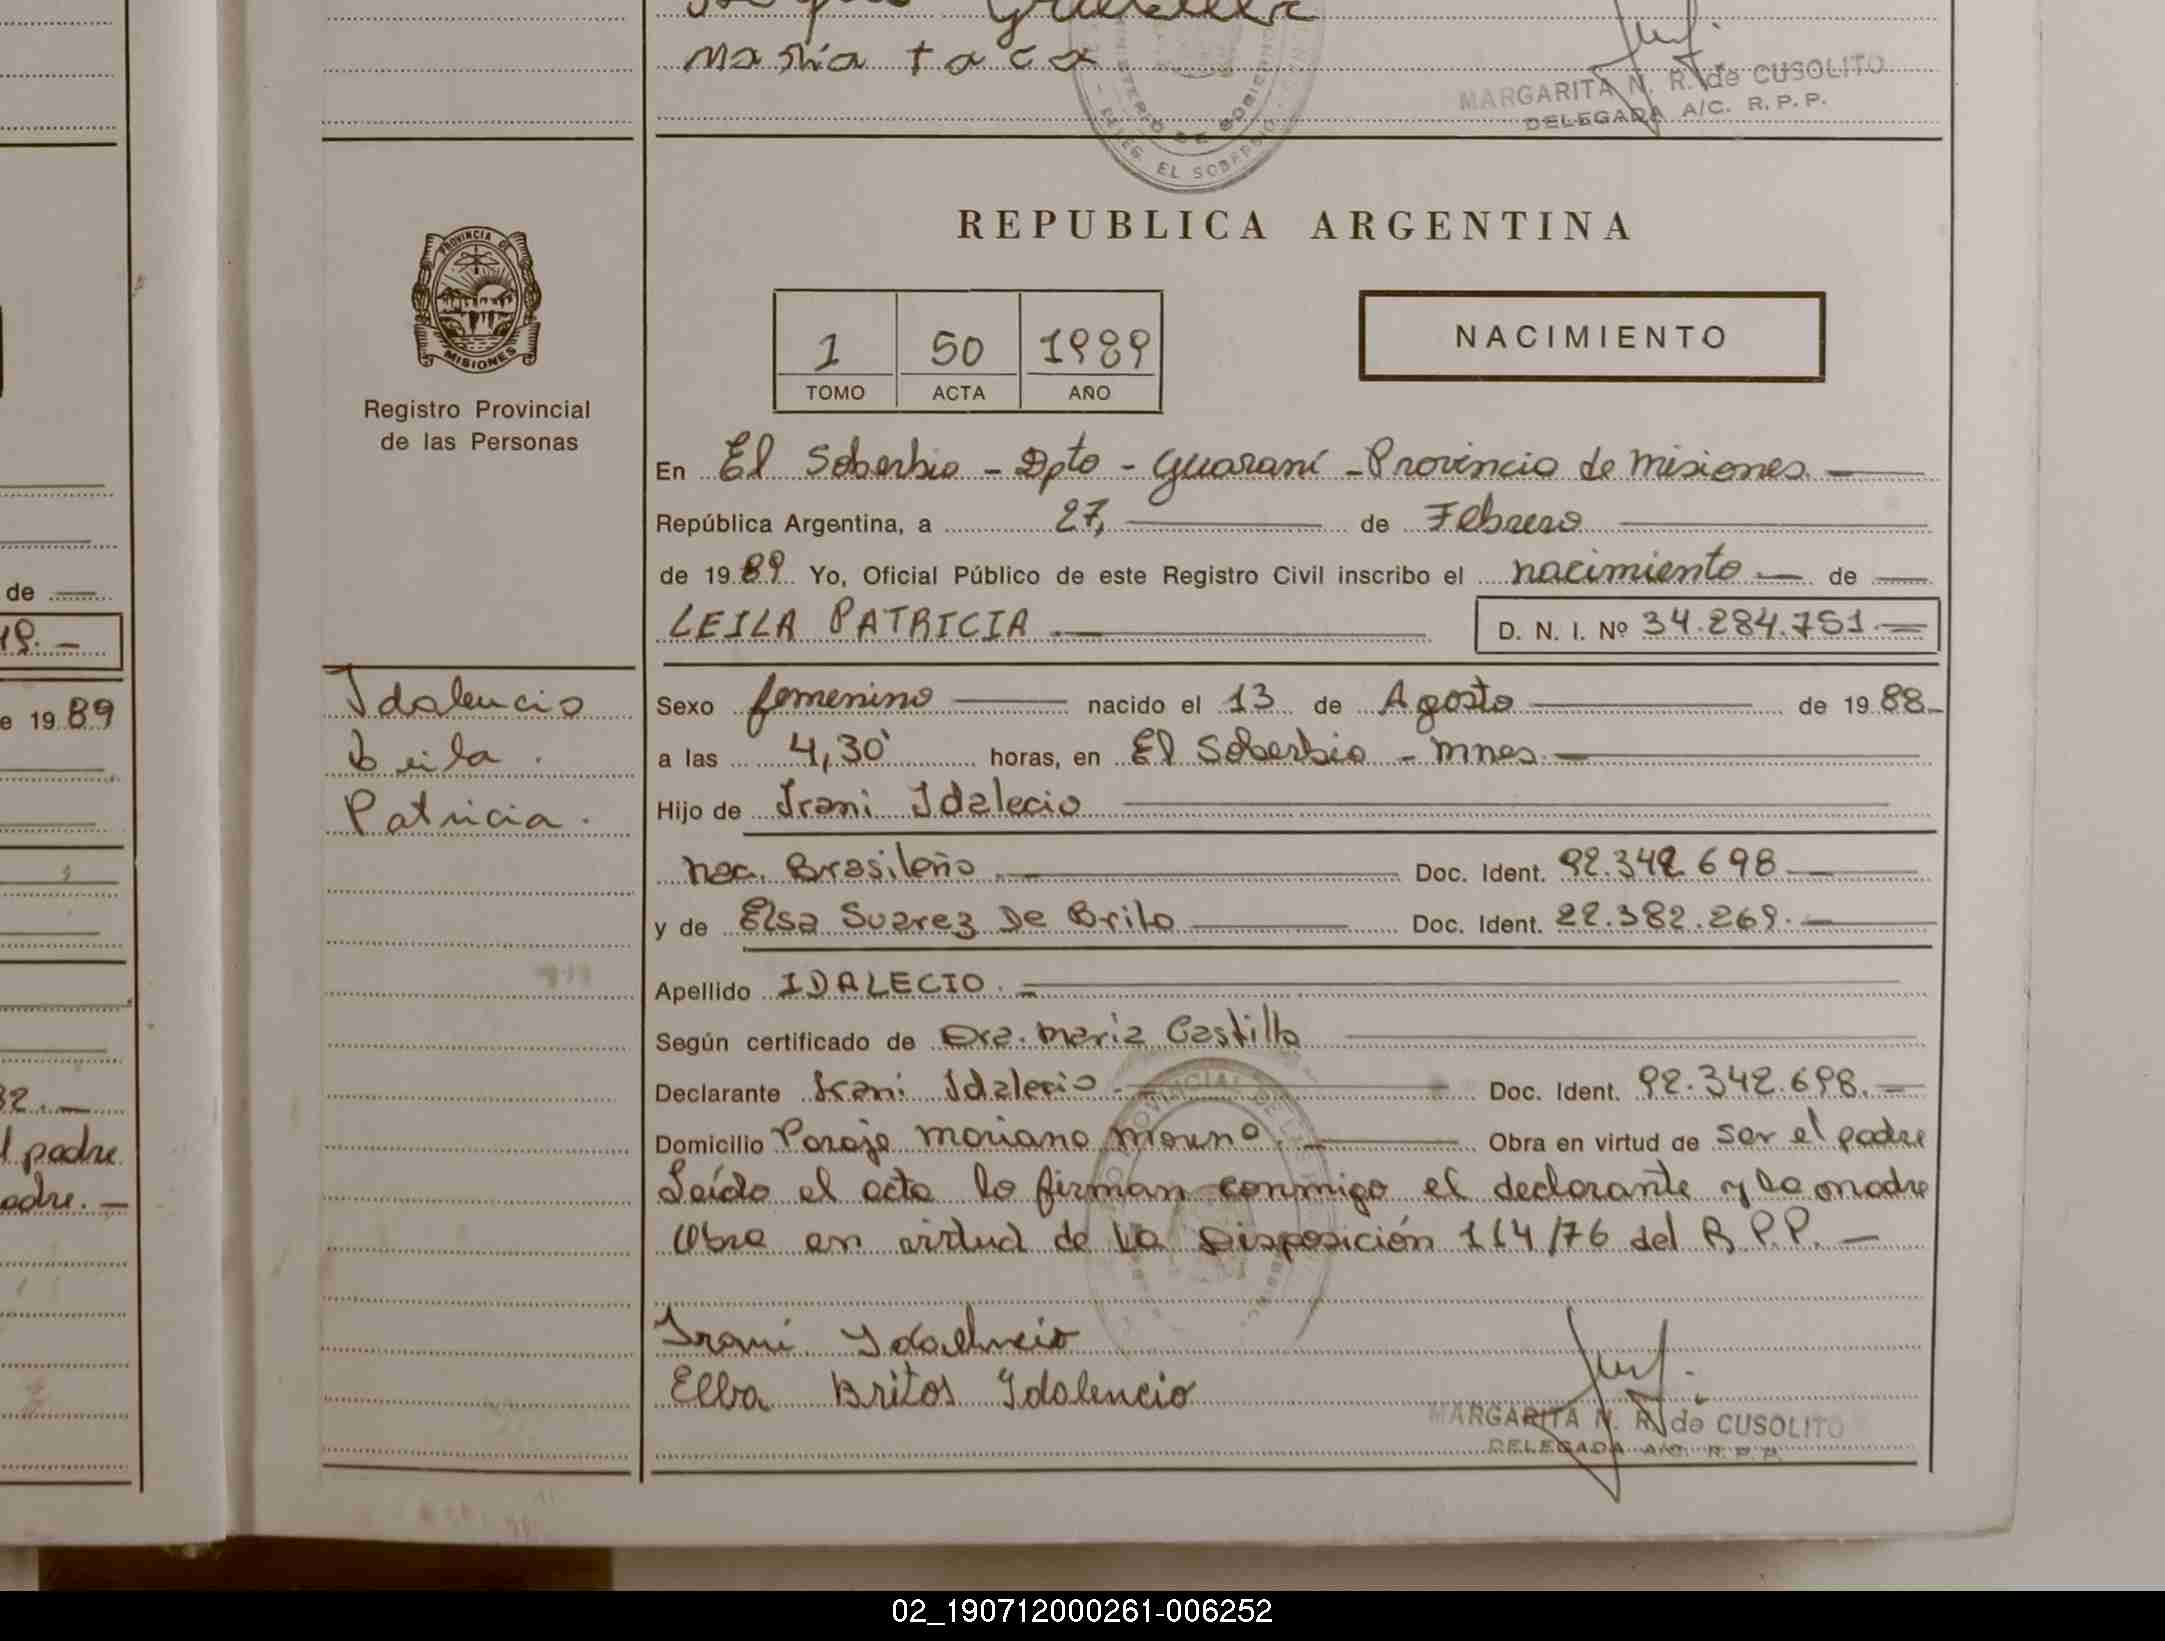 María taca
MARGARITA N. R. de CUSOLITO
DELEGADA A/C. R. P. P.
DELEG. EL SOBERBIO
PROVINCIA DE
MISIONES
Registro Provincial
de las Personas
REPUBLICA ARGENTINA
1 50 1989
TOMO ACTA AÑO
NACIMIENTO
En El Soberbio - Dpto - Guaraní - Provincia de Misiones. —
República Argentina, a 27, — de Febrero —
de 19 89 Yo, Oficial Público de este Registro Civil inscribo el nacimiento — de —
LEILA PATRICIA — D. N. I. Nº 34.284.751 —
Idalencio
Leila .
Patricia .
Sexo femenino — nacido el 13 de Agosto — de 19 88 -
a las 4,30' horas, en El Soberbio - Mnes. —
Hijo de Irani Idalecio —
nac. Brasileño — Doc. Ident. 92.342 698 —
y de Elsa Suarez De Brito — Doc. Ident. 22.382.269. —
Apellido IDALECIO. —
Según certificado de Dra. Maria Castillo —
Declarante Irani Idalecio. — Doc. Ident. 92.342.698. —
Domicilio Paraje Mariano Moreno. — Obra en virtud de ser el padre
Leído el acta lo firman conmigo el declarante y la madre
Obra en virtud de la Disposición 114/76 del R.P.P. —
Irani Idalencio
Elba Britos Idalencio
MARGARITA N. R. de CUSOLITO
DELEGADA A/C. R. P. P.
de —
19. —
e 19 89
32. —
l padre
adre. —
02_190712000261-006252